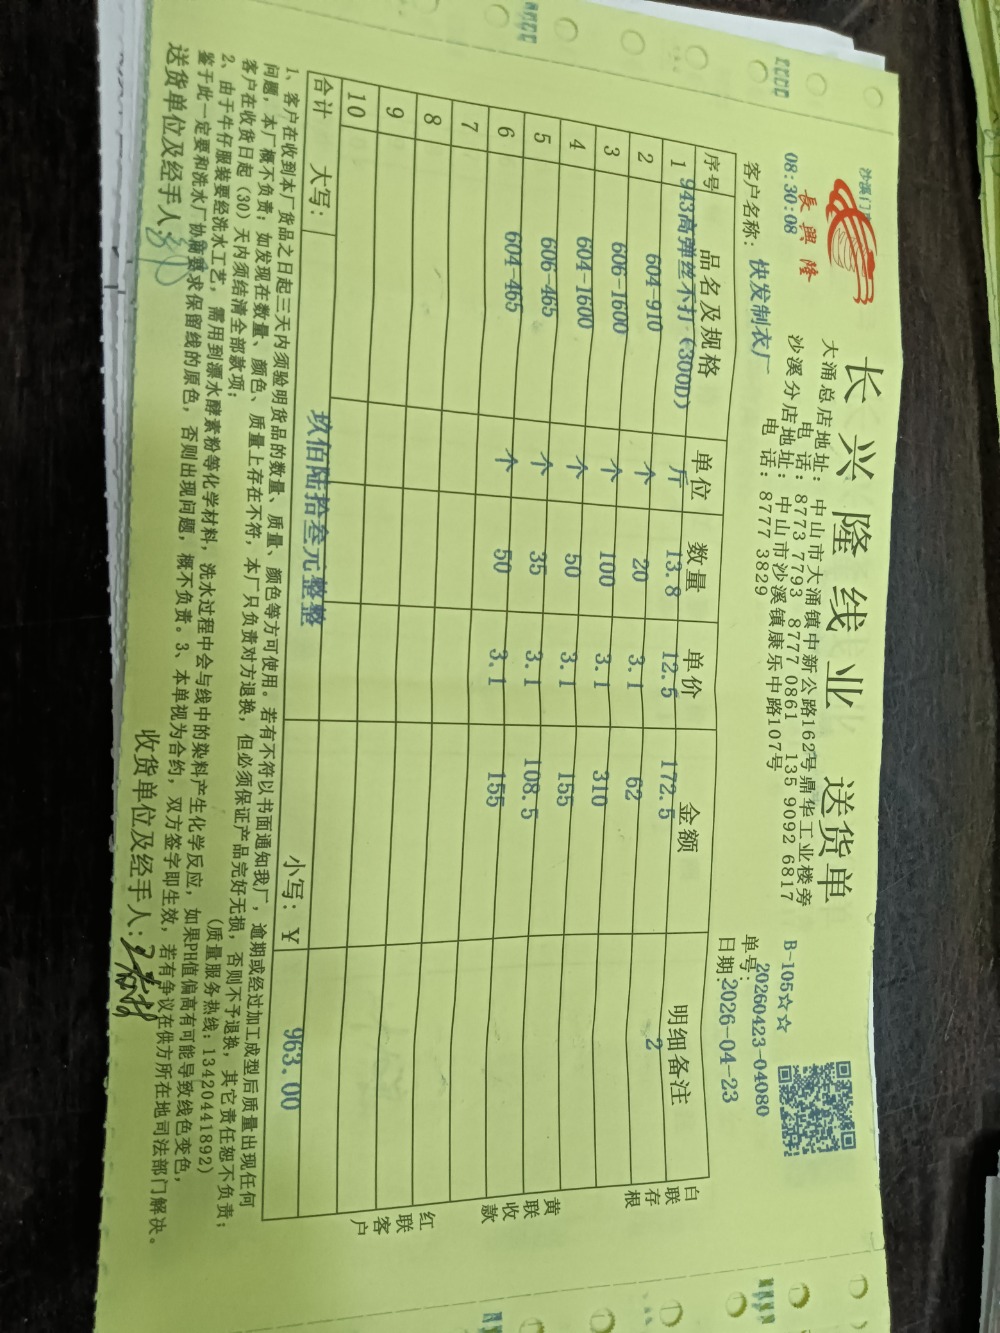 沙溪门
長興隆
长兴隆线业 送货单
大涌总店地址：中山市大涌镇中新公路162号鼎华工业楼旁
电话：8773 7793 8777 0861 135 9092 6817
沙溪分店地址：中山市沙溪镇康乐中路107号
电话：8777 3829
08:30:08
B-105☆☆
单号：20260423-04080
客户名称：快发制衣厂
日期：2026-04-23
序号 品名及规格 单位 数量 单价 金额 明细备注
1 943高弹丝不打（300D） 斤 13.8 12.5 172.5
2 604-910 个 20 3.1 62 2
3 606-1600 个 100 3.1 310
4 604-1600 个 50 3.1 155
5 606-465 个 35 3.1 108.5
6 604-465 个 50 3.1 155
7
8
9
10
合计 大写：玖佰陆拾叁元整整 小写：￥ 963.00
白联存根
黄联收款
红联客户
1、客户在收到本厂货品之日起三天内须验明货品的数量、质量、颜色等方可使用。若有不符以书面通知我厂，逾期或经过加工成型后质量出现任何
问题，本厂概不负责；如发现在数量、颜色、质量上存在不符，本厂只负责对方退换，但必须保证产品完好无损，否则不予退换，其它责任恕不负责；
客户在收货日起（30）天内须结清全部款项；
（质量服务热线：13420441892）
2、由于牛仔服装要经洗水工艺，需用到漂水酵素粉等化学材料，洗水过程中会与线中的染料产生化学反应，如果PH值偏高有可能导致线色变色，
鉴于此一定要和洗水厂协商要求保留线的原色，否则出现问题，概不负责。3、本单视为合约，双方签字即生效，若有争议在供方所在地司法部门解决。
送货单位及经手人：
收货单位及经手人：